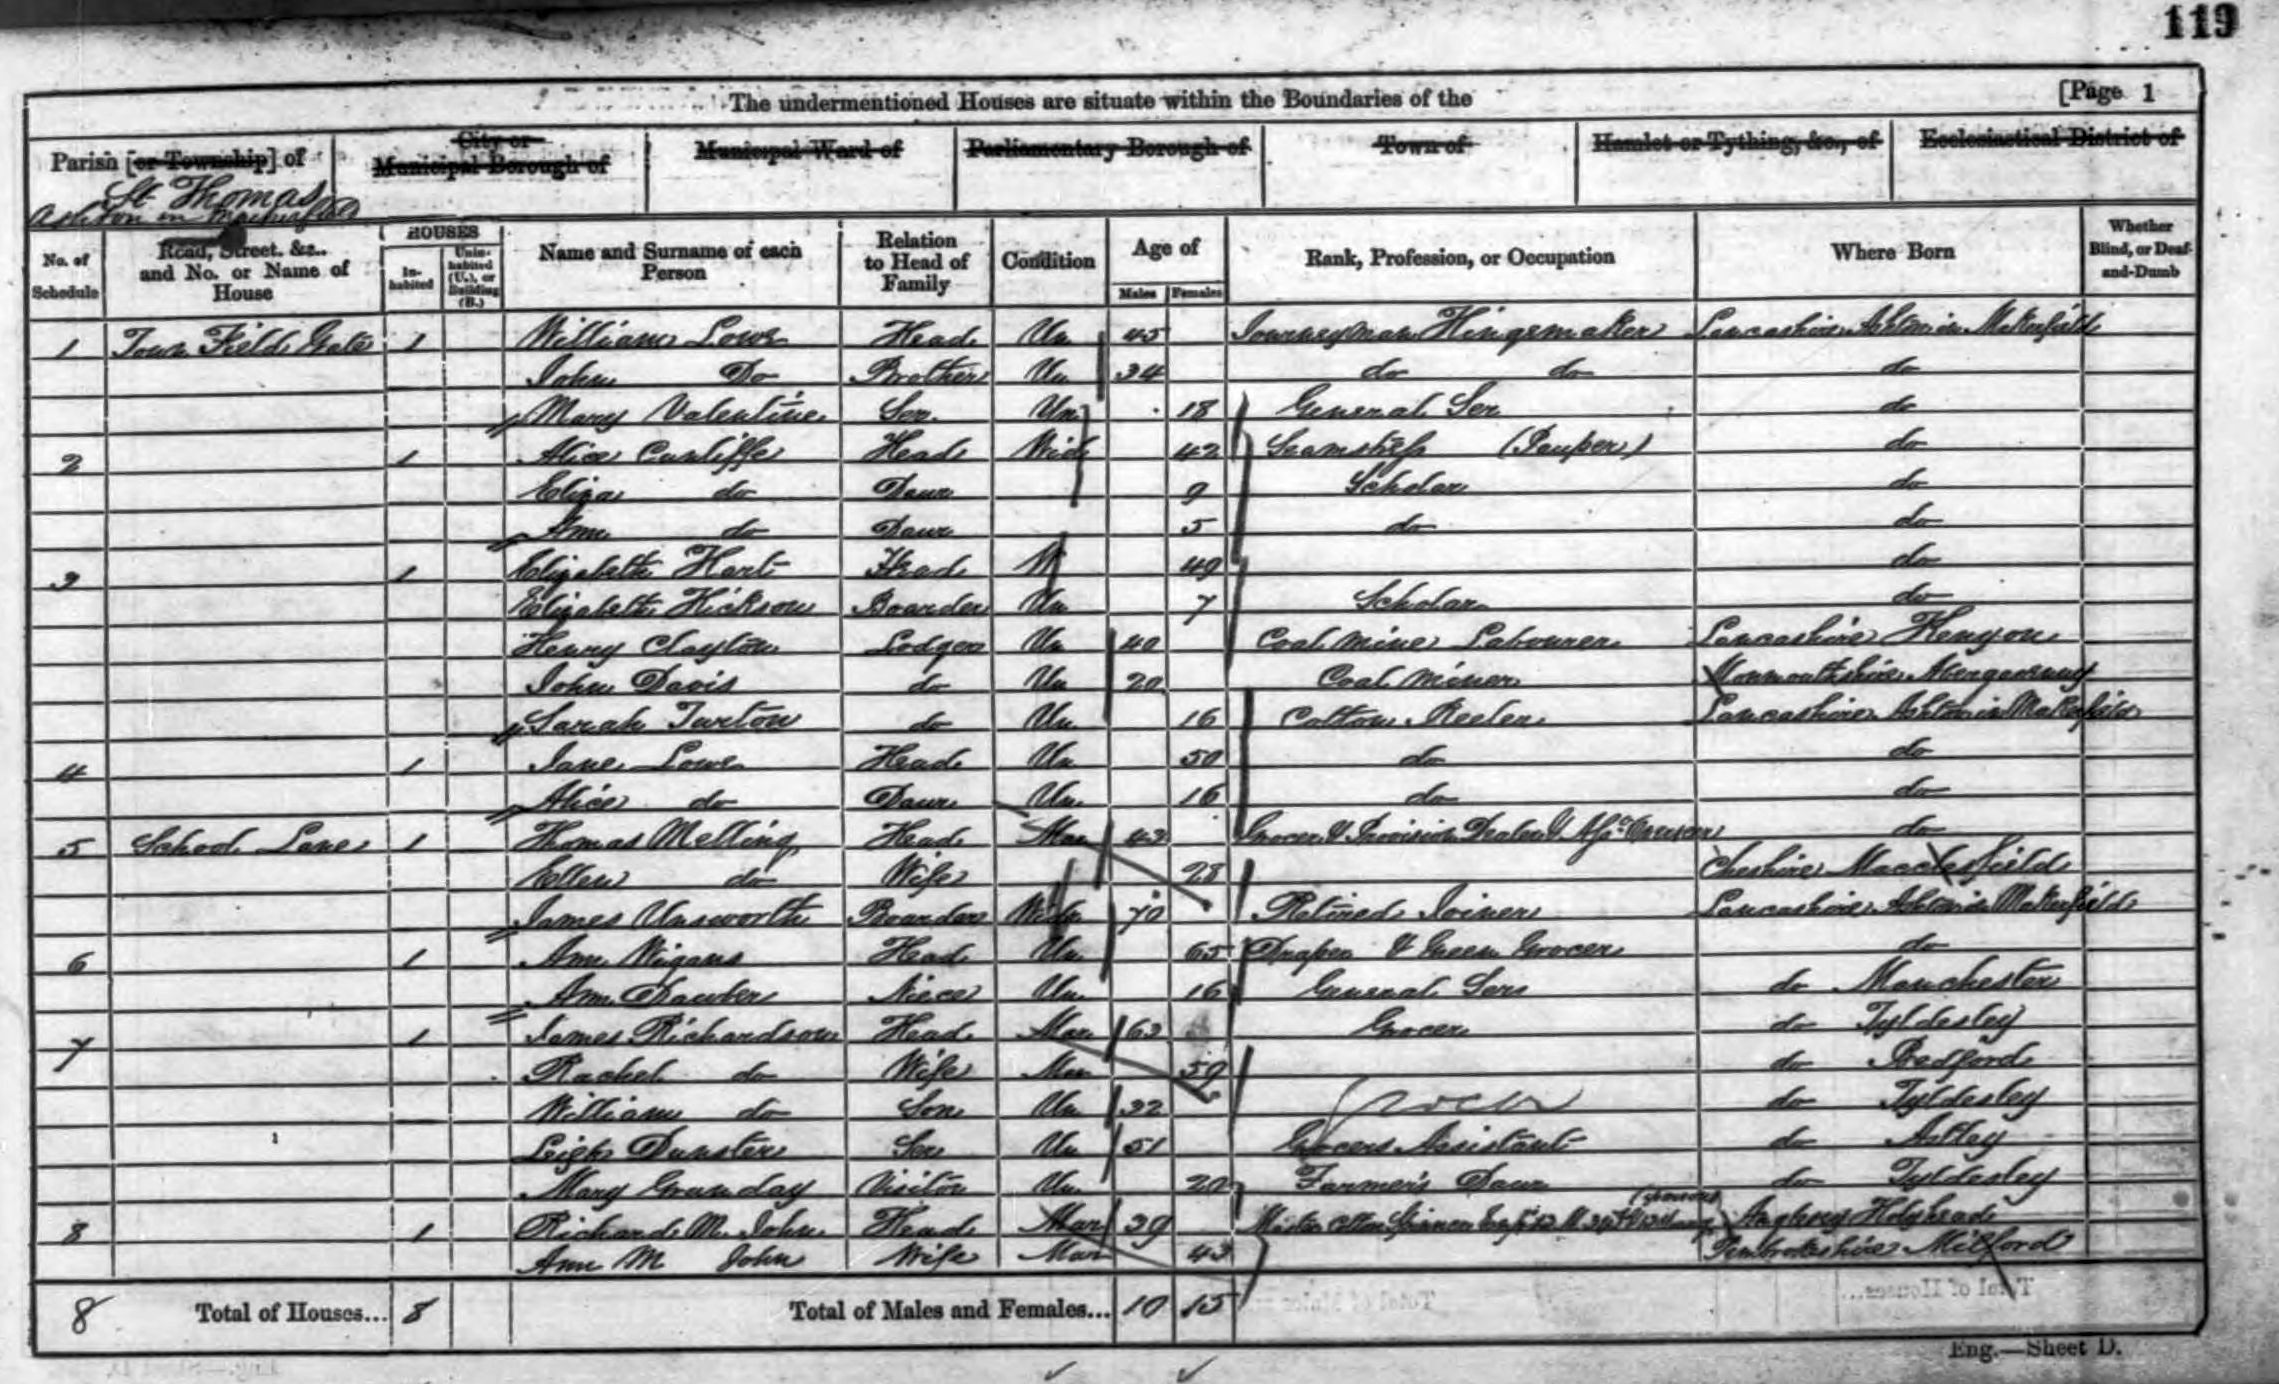 119
The undermentioned Houses are situate within the Boundaries of the [Page 1
Parish [or Township] of City or Municipal Borough of Municipal Ward of Parliamentary Borough of Town of Hamlet or Tything, &c., of Ecclesiastical District of
St Thomas
Ashton in Makerfield
No. of Schedule Road, Street, &c., and No. or Name of House HOUSES In-habited Unin-habited (U.), or Building (B.) Name and Surname of each Person Relation to Head of Family Condition Age of Males Females Rank, Profession, or Occupation Where Born Whether Blind, or Deaf-and-Dumb
1 Town Field Gate 1 William Lowe Head Un 45 Journeyman Hingemaker Lancashire Ashton in Makerfield
John Do Brother Un 34 do do do
Mary Valentine Ser Un 18 General Ser do
2 1 Alice Cunliffe Head Wid 42 Seamstress (Pauper) do
Eliza do Daur 9 Scholar do
Ann do Daur 5 do do
3 1 Elizabeth Hart Head W 49 do
Elizabeth Hickson Boarder Un 7 Scholar do
Henry Clayton Lodger Un 40 Coal Mine Labourer Lancashire Kenyon
John Davis do Un 20 Coal Miner Monmouthshire Abergavenny
Sarah Turton do Un 16 Cotton Reeler Lancashire Ashton in Makerfield
4 1 Jane Lowe Head Un 50 do do
Alice do Daur Un 16 do do
5 School Lane 1 Thomas Melling Head Mar 43 Grocer & Provision Dealer & do
Ellen do Wife 28 Cheshire Macclesfield
James Unsworth Boarder Widr 70 Retired Joiner Lancashire Ashton in Makerfield
6 1 Ann Wigans Head Un 65 Draper & Green Grocer do
Ann Dawber Niece Un 16 General Ser do Manchester
7 1 James Richardson Head Mar 63 Grocer do Tyldesley
Rachel do Wife Mar 59 do Bedford
William do Son Un 32 do Tyldesley
Leigh Dunster Ser Un 51 Grocers Assistant do Astley
Mary Grunday Visitor Un 20 Farmer's Daur do Tyldesley
8 1 Richard M. John Head Mar 39 Cotton Spinner Anglesey Holyhead
Ann M John Wife Mar 43 Pembrokeshire Milford
8 Total of Houses... 8 Total of Males and Females... 10 15
Eng.—Sheet D.